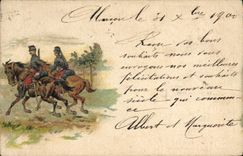 le 31 Xbre 1900
vos bons
souhaits nous vous
envoyons nos meilleures
félicitations et souhaits
pour le nouveau
siècle qui commen
ce
Albert et Marguerite